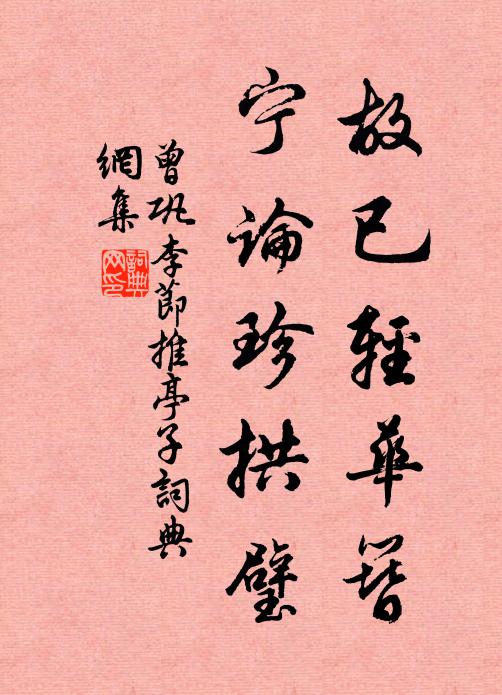 故已輕華簪
宁論珍拱璧
曾巩李節推亭子詞典
網集
詞典
网印